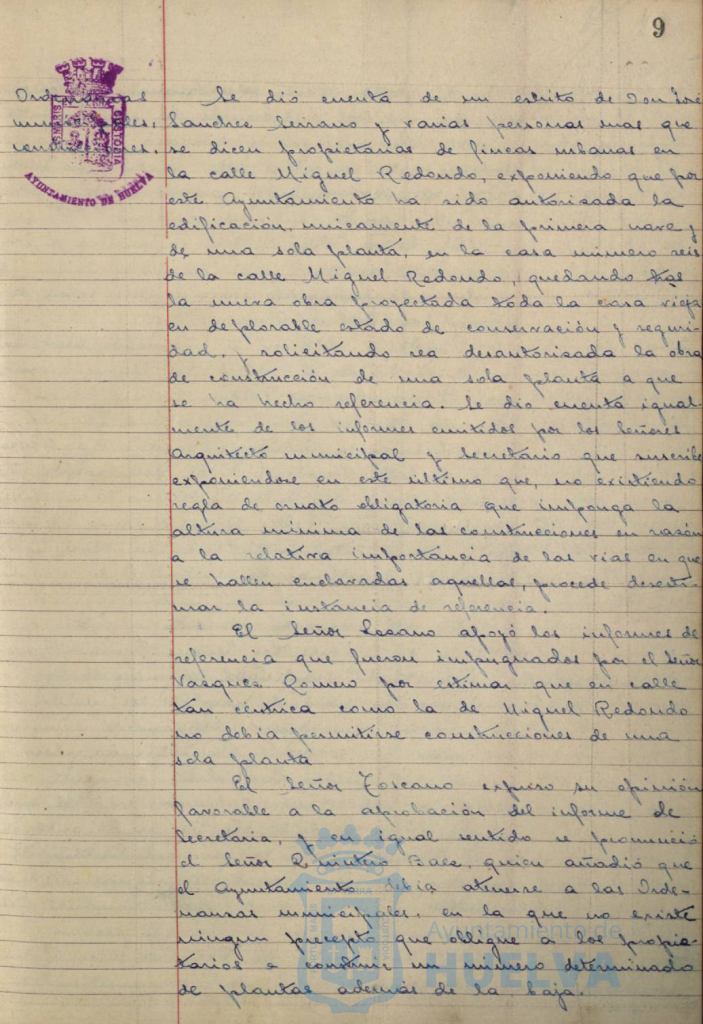 9
Ordenanzas
municipales,
construcciones.
PORTUS MARIS
CUSTODIA
AYUNTAMIENTO DE HUELVA
Se dió cuenta de un escrito de Don José
Sanchez Serrano y varias personas mas que
se dicen propietarias de fincas urbanas en
la calle Miguel Redondo, exponiendo que por
este Ayuntamiento ha sido autorizada la
edificación, unicamente de la primera nave y
de una sola planta, en la casa número seis
de la calle Miguel Redondo, quedando tras
la nueva obra proyectada toda la casa vieja
en deplorable estado de conservación y seguri-
dad, y solicitando sea desautorizada la obra
de construcción de una sola planta a que
se ha hecho referencia. Se dio cuenta igual-
mente de los informes emitidos por los Señores
Arquitecto municipal y Secretario que suscribe
exponiendose en este último que, no existiendo
regla de ornato obligatoria que imponga la
altura mínima de las construcciones en razón
a la relativa importancia de las vias en que
se hallen enclavadas aquellas, procede desesti-
mar la instancia de referencia.
El Señor Lozano apoyó los informes de
referencia que fueron impugnados por el Señor
Vazquez Romero por estimar que en calle
tan céntrica como la de Miguel Redondo
no debia permitirse construcciones de una
sola planta
El Señor Toscano expuso su opinión
favorable a la aprobación del informe de
Secretaria, y en igual sentido se pronunció
el Señor Quintero Baez, quien añadió que
el Ayuntamiento debia atenerse a las Orde-
nanzas municipales, en la que no existe
ningun precepto que obligue a los propie-
tarios a construir un número determinado
de plantas además de la baja.
Ayuntamiento de
HUELVA